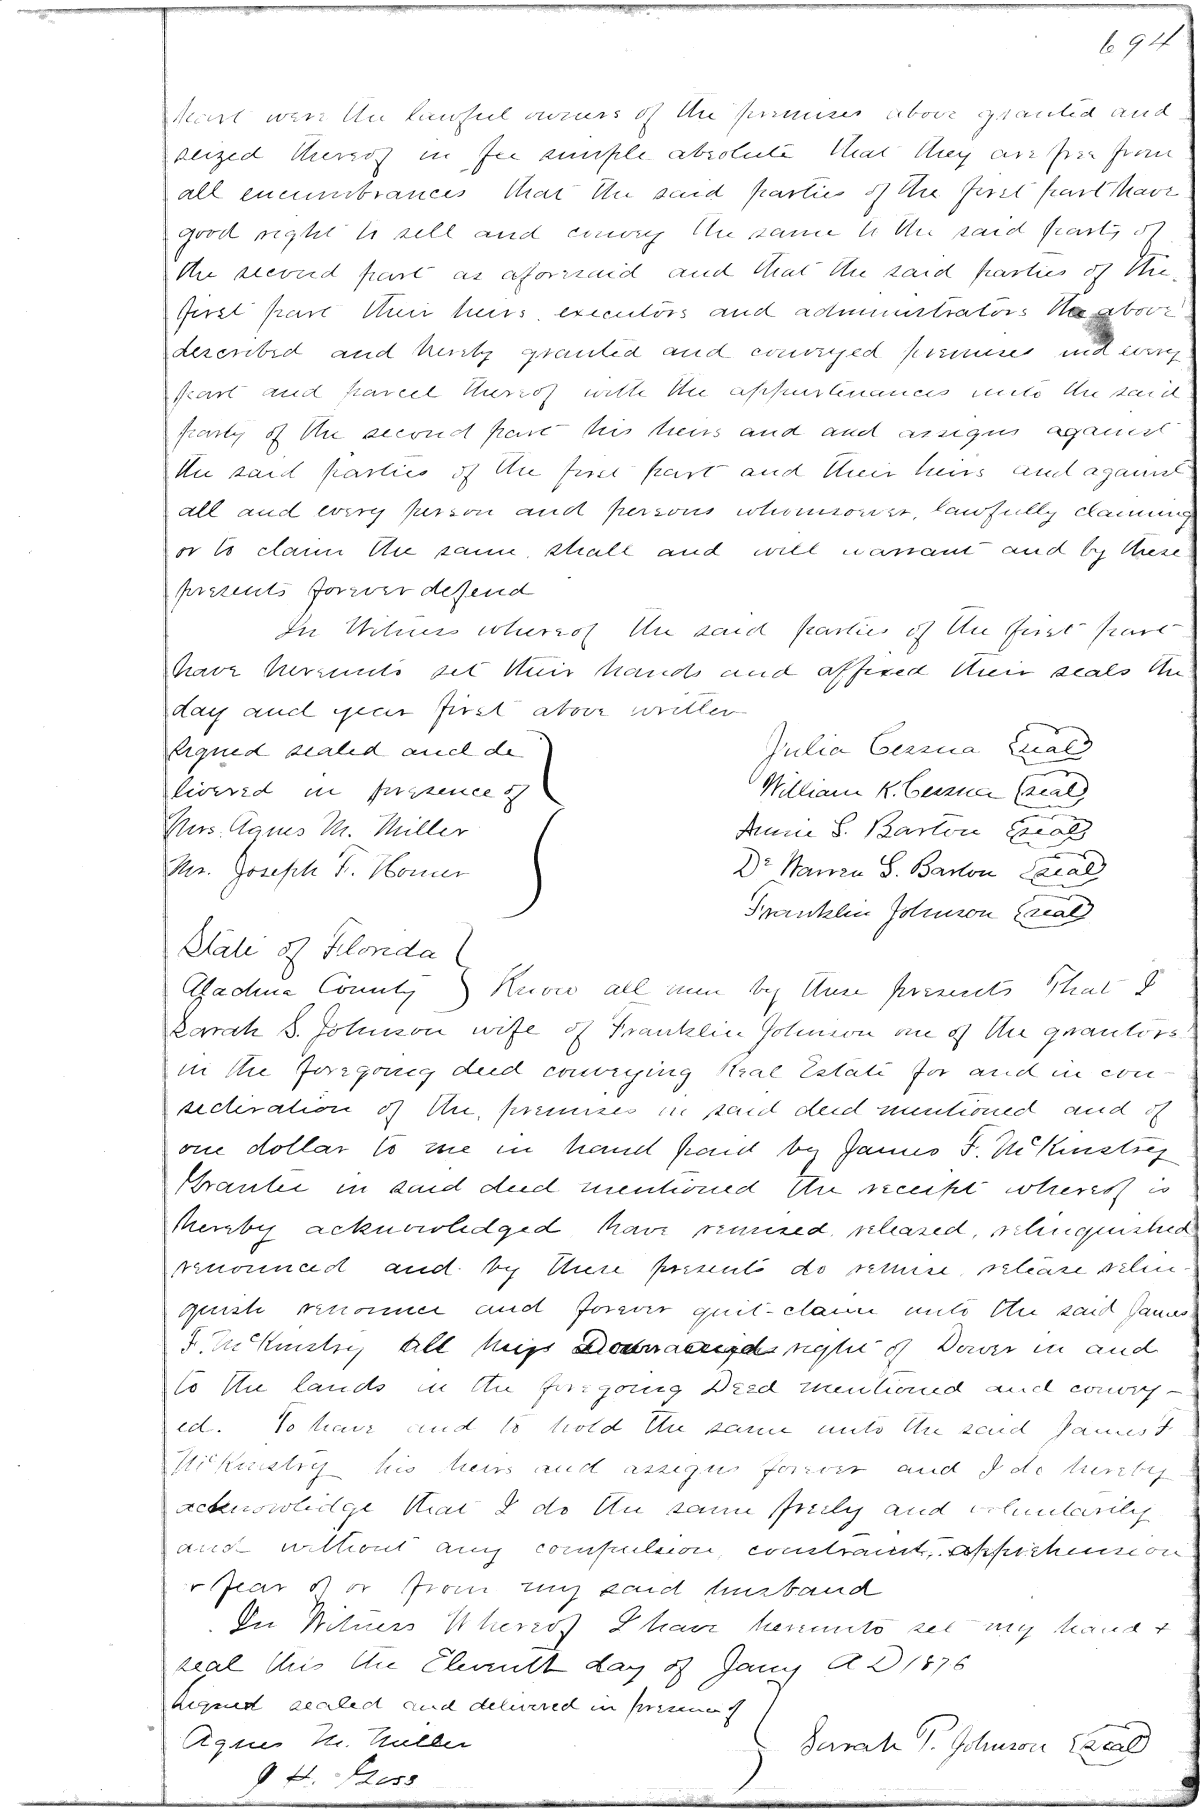 694
part were the lawful owners of the premises above granted and
seized thereof in fee simple absolute that they are free from
all encumbrances that the said parties of the first part have
good right to sell and convey the same to the said party of
the second part as aforesaid and that the said parties of the
first part their heirs, executors and administrators the above
described and hereby granted and conveyed premises and every
part and parcel thereof with the appurtenances unto the said
party of the second part his heirs and and assigns against
the said parties of the first part and their heirs and against
all and every person and persons whomsoever, lawfully claiming
or to claim the same, shall and will warrant and by these
presents forever defend
In Witness whereof the said parties of the first part
have hereunto set their hands and affixed their seals the
day and year first above written
Signed sealed and de
livered in presence of
Mrs. Agnes M. Miller
Mr. Joseph F. Homer
Julia Cessna seal
William K. Cessna seal
Annie S. Barton seal
Dr Warren S. Barton seal
Franklin Johnson seal
State of Florida
Alachua County } Know all men by these presents That I
Sarah S. Johnson wife of Franklin Johnson one of the grantors
in the foregoing deed conveying Real Estate for and in con-
sederation of the, premises in said deed mentioned and of
one dollar to me in hand paid by James F. McKinstry
Grantee in said deed mentioned the receipt whereof is
hereby acknowledged have remised, released, relinquished
renounced and by these presents do remise, release relin-
quish renounce and forever quit-claim unto the said James
F. McKinstry all right of Dower in and
to the lands in the foregoing Deed mentioned and convey-
ed. To have and to hold the same unto the said James F
McKinstry his heirs and assigns forever and I do hereby
acknowledge that I do the same freely and voluntarily
and without any compulsion, constraint, apprehension
r fear of or from my said husband
In Witness Whereof I have hereunto set my hand &
seal this the Eleventh day of Jany A D 1876
Signed sealed and delivered in presence of
Agnes M. Miller
Sarrah P. Johnson seal
J H. Goss